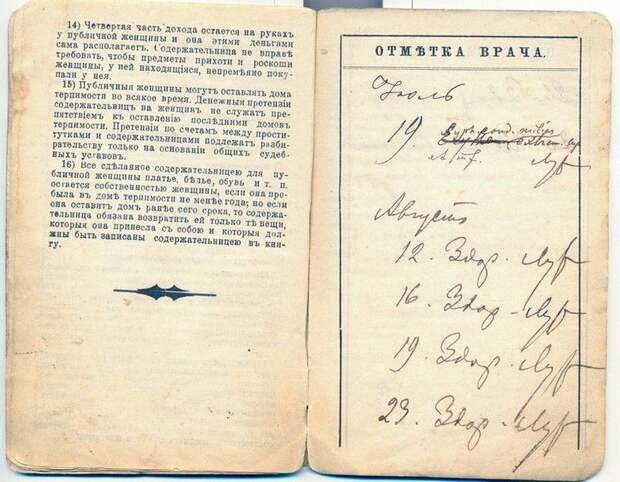 14) Четвертая часть дохода остается на рукахъ
у публичной женщины и она этими деньгами
сама располагаетъ. Содержательница не вправѣ
требовать, чтобы предметы прихоти и роскоши
женщины, у ней находящіяся, непремѣнно поку-
пали у нея.
15) Публичныя женщины могутъ оставлять дома
терпимости во всякое время. Денежныя претензіи
содержательницъ на женщинъ не служатъ пре-
пятствіемъ къ оставленію послѣднимъ домовъ
терпимости. Претензіи по счетамъ между прости-
тутками и содержательницами подлежатъ разбира-
тельству только на основаніи общихъ судеб-
ныхъ уставовъ.
16) Все сдѣланное содержательницею для пу-
бличной женщины платье, бѣлье, обувь и т. п.
остается собственностью женщины, если она про-
была въ домѣ терпимости не менѣе года; но если
она оставитъ домъ ранѣе сего срока, то содержа-
тельница обязана возвратить ей только тѣ вещи,
которыя она принесла съ собою и которыя дол-
жны быть записаны содержательницею въ кни-
гу.
ОТМѢТКА ВРАЧА.
Іюль
19
Августъ
12. Здор.
16. Здор.
19. Здор.
23. Здор.